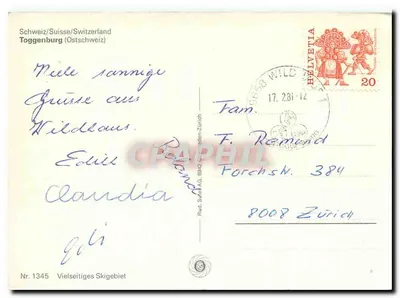 Schweiz/Suisse/Switzerland
Toggenburg (Ostschweiz)
Viele sonnige
Grüsse aus
Wildhaus
Edith
Roland
Claudia
HELVETIA
20
WILD
17. 2.81-12
Fam.
F. Raimond
Forchstr. 384
8008 Zürich
CPAPHIL
Nr. 1345 Vielseitiges Skigebiet